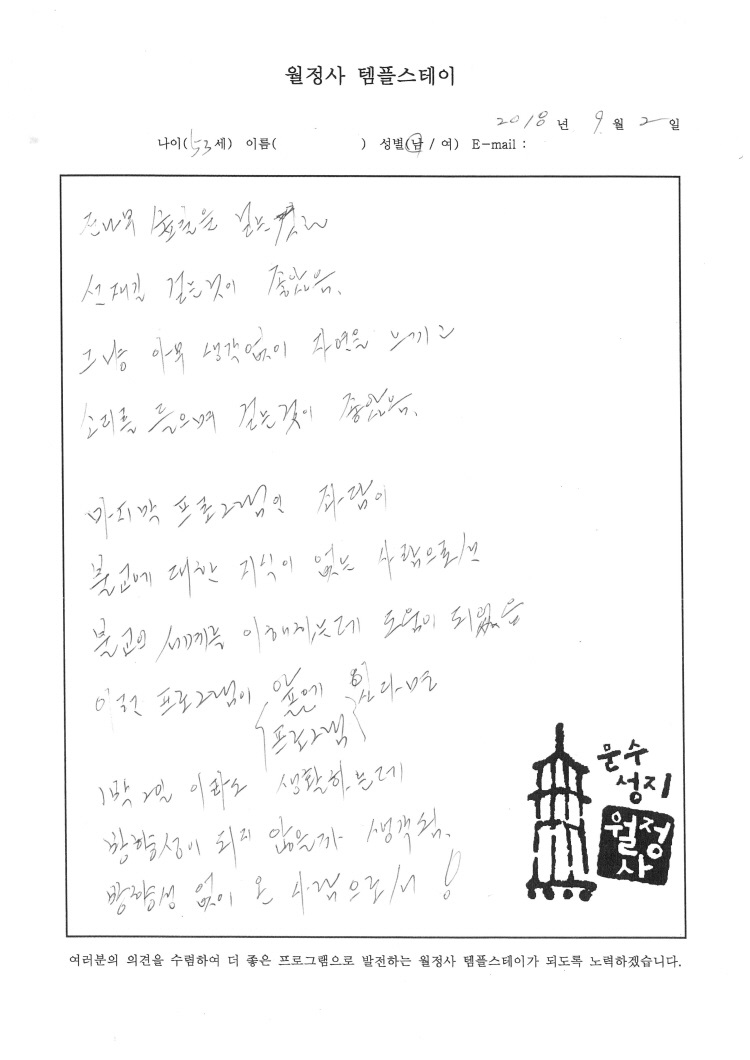 월정사 템플스테이
2018 년 9 월 2 일
나이(53세) 이름( ) 성별(남 / 여) E-mail :
전나무 숲길을 걷는것과
선재길 걷는것이 좋았음.
그냥 아무 생각없이 자연을 느끼고
소리를 들으며 걷는것이 좋았음.
마지막 프로그램인 좌담이
불교에 대한 지식이 없는 사람으로서
불교의 세계를 이해하는데 도움이 되었음
이런 프로그램이 앞에 있다면
프로그램
1박 2일 이라도 생활하는데
방향성이 되지 않을까 생각됨.
방향성 없이 온 사람으로서!
문수
성지
월정
사
여러분의 의견을 수렴하여 더 좋은 프로그램으로 발전하는 월정사 템플스테이가 되도록 노력하겠습니다.